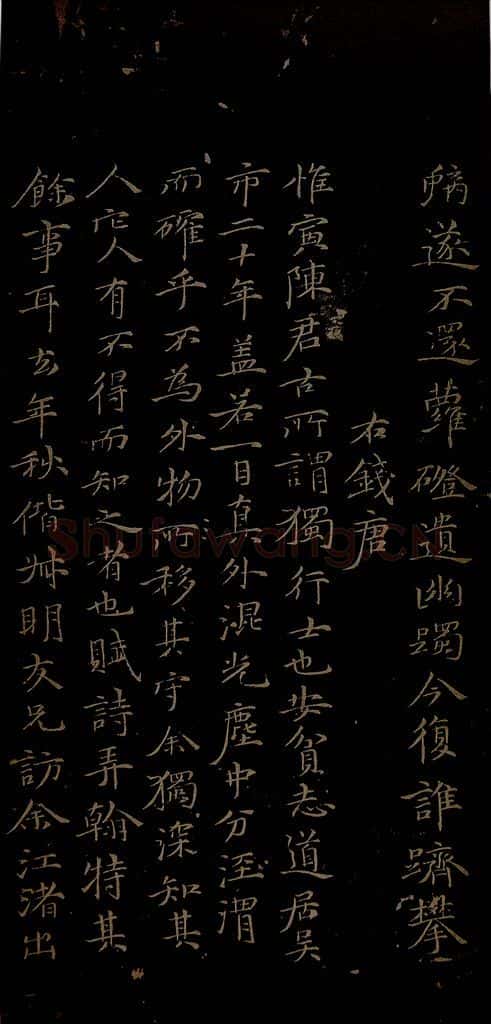 痾遂不還蘿磴遺幽躅今復誰躋攀
右錢唐
惟寅陳君古所謂獨行士也安貧志道居吳
市二十年蓋若一日真外混光塵中分涇渭
而確乎不為外物所移其守余獨深知其
人它人有不得而知之者也賦詩弄翰特其
餘事耳去年秋偕叔明友兄訪余江渚出
Shufawang.CN